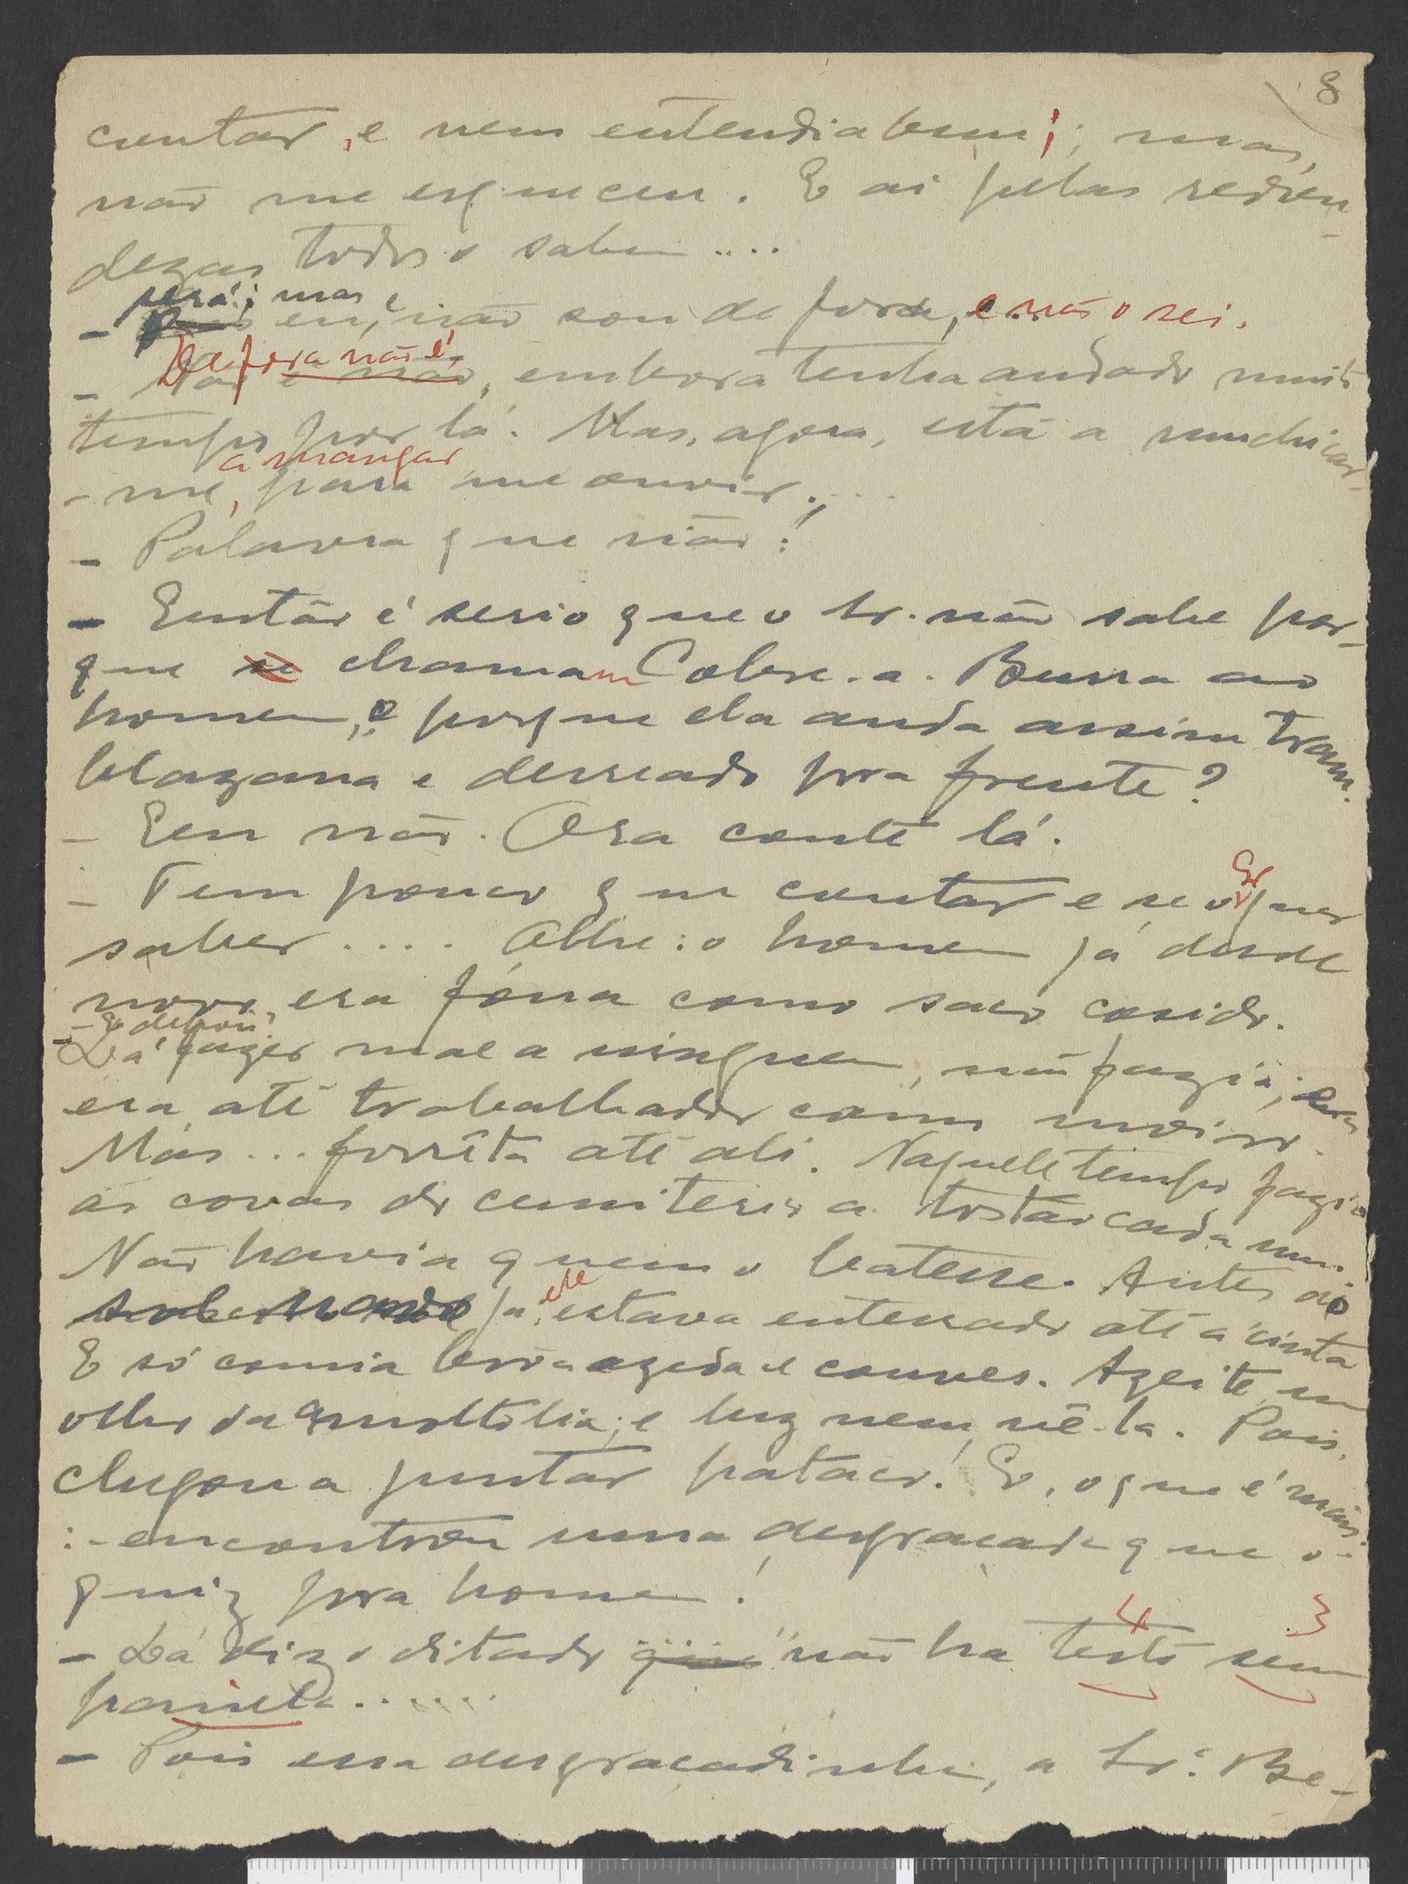 8
contar, e nem entendia bem; mas,
não me esqueceu. E ai pelas redon-
dezas todos o sabem ....
será; mas
- eu, não sou de fora, e não o sei.
De fora não é
- Não é não, embora tenha andado muito
tempo por lá. Mas, agora, está a
a mangar
-me, para me ouvir....
- Palavra que não!
- Então é serio que o sr. não sabe por-
que se chamam Cobre-a-Burra ao
homem, e porque ela anda assim tram-
blazana e derreado pra frente?
- Eu não. Ora conte lá.
- Tem pouco que contar e se o sr quer
saber .... Olhe: o homem já desde
novo, era fóna como saco cosido.
- E depois?
- Lá fazer mal a ninguem, não fazia; era
era até trabalhador como moiro.
Mas... forrêta até ali. Naquele tempo fazia
as covas do cemiterio a tostão cada uma.
Não havia quem o batesse. Antes do
já ele estava enterrado até á cinta
E só comia brôa azeda e couves. Azeite, um
olho da almotolia; e luz nem vê-la. Pois,
chegou a juntar pataco! E, o que é mais:
:- encontrou uma desgraçada que o-
quiz pra homem!
- Lá diz o ditado que "não ha testo sem
4 3
panela......
- Pois essa desgraçadinha, a Sr.ª Be-